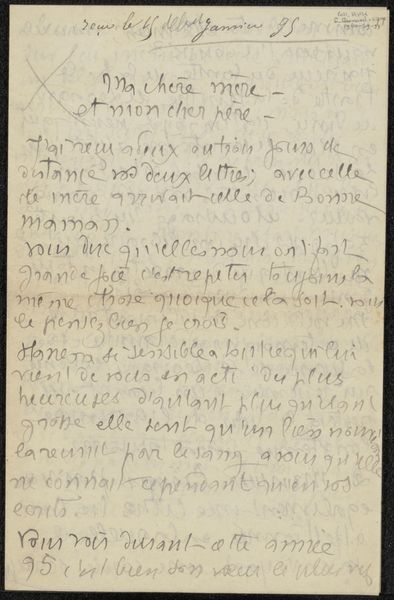 reçu le 15 janvier 95
Ma chère mère –
et mon cher père –
J'ai reçu à deux ou trois jours de
distance vos deux lettres; avec celle
de mère arrivait celle de Bonne
maman.
Vous dire qu'elles nous ont fait
grande joie c'est répéter toujours la
même chose quoique cela soit, vous
le pensez bien je crois.
si sensible à tout ce qui lui
vient de vous en a été du plus
heureuses d'autant plus qu'étant
grosse elle sent qu'un lien nouveau
la réunit par le sang à vous qu'elle
ne connait cependant qu'en vos
écrits.
Vous voir durant cette année
95 c'est bien son vœu le plus vif